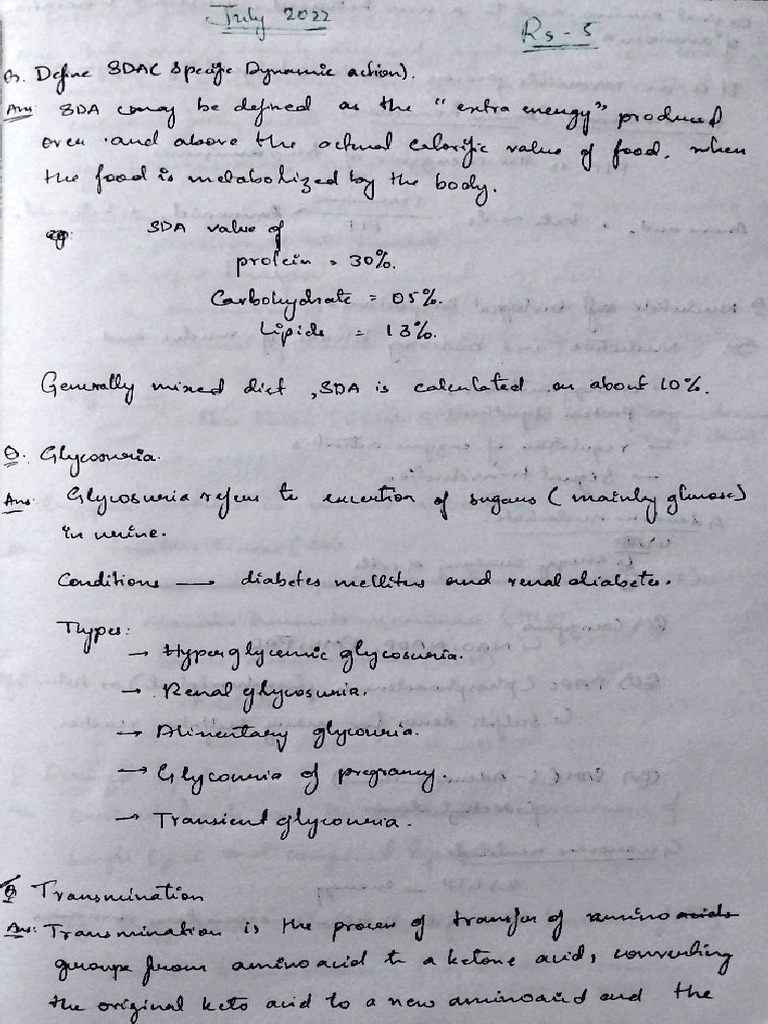 July 2022
Rs - 5
Q. Define SDA( Specific Dynamic action).
Ans SDA may be defined as the "extra energy" produced
over and above the actual calorific value of food, when
the food is metabolized by the body.
eg: SDA value of
protein = 30%.
Carbohydrate = 05%.
Lipids = 13%.
Generally mixed diet, SDA is calculated on about 10%.
Q. Glycosuria.
Ans: Glycosuria refers to excertion of sugars (mainly glucose)
in urine.
Conditions → diabetes mellitus and renal diabetes.
Types:
→ Hyperglycemic glycosuria.
→ Renal glycosuria.
→ Alimentary glycouria.
→ Glycouria of pregnancy.
→ Transient glycouria.
Q Transmination
Ans: Transmination is the process of transfer of amino acids
groups from amino acid to a ketone acids, converting
the original keto acid to a new aminoacid and the